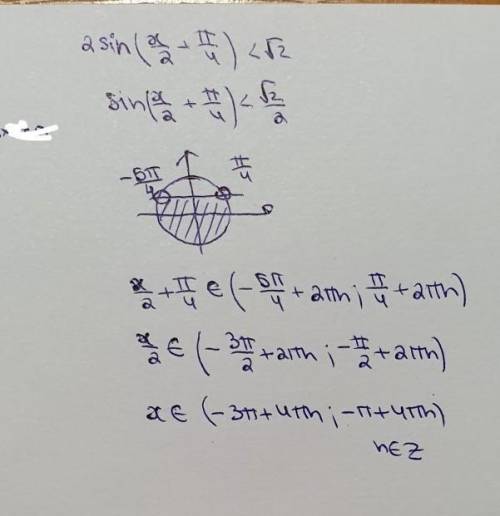 2sin(x/2 + π/4) < √2
sin(x/2 + π/4) < √2/2
-5π/4 π/4
x/2 + π/4 ∈ (-5π/4 + 2πn ; π/4 + 2πn)
x/2 ∈ (-3π/2 + 2πn ; -π/2 + 2πn)
x ∈ (-3π + 4πn ; -π + 4πn)
n ∈ Z